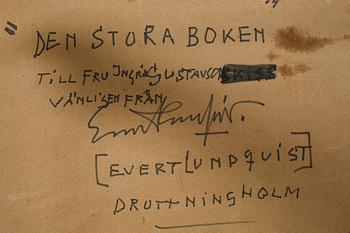 DEN STORA BOKEN
TILL FRU INGRID GUSTAVSON
VÄNLIGEN FRÅN
[EVERT LUNDQUIST]
DROTTNINGHOLM